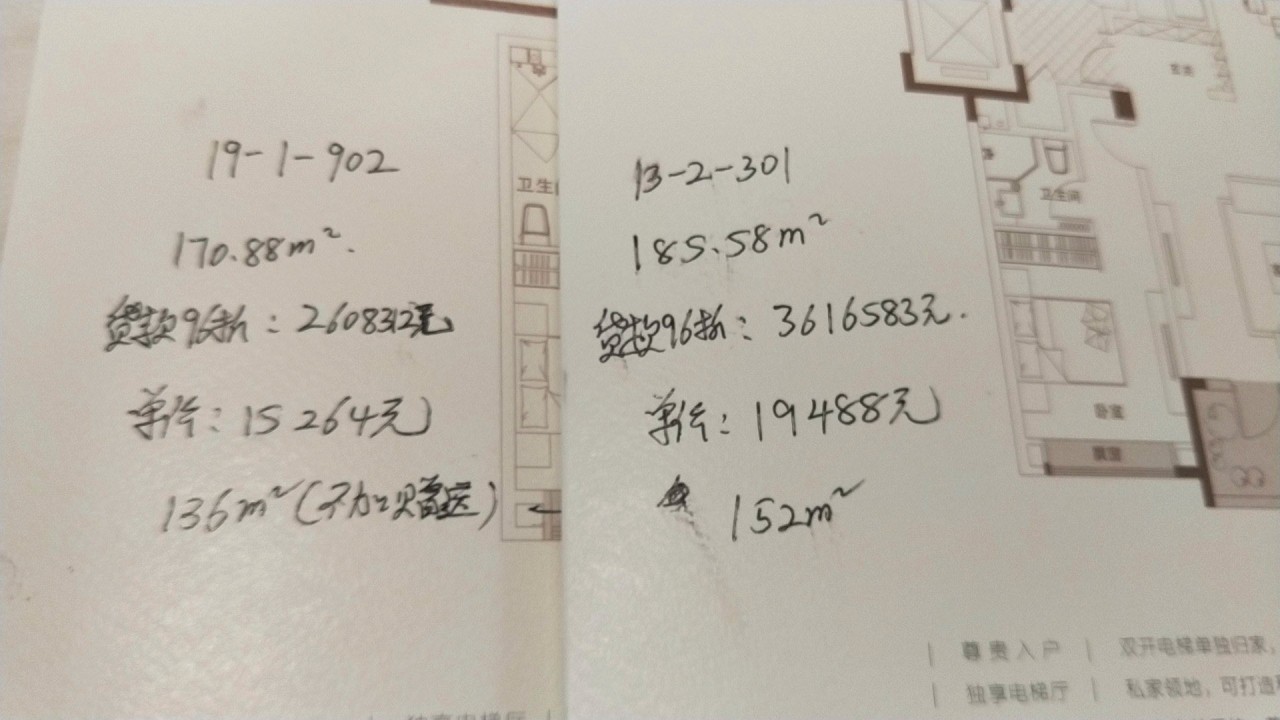 19-1-902
170.88m².
贷款96折：2608312元
单价：15264元
136m²(不加赠送)
卫生间
13-2-301
185.58m²
贷款96折：3616583元.
单价：19488元
152m²
玄关
卫生间
卧室
飘窗
| 尊贵入户 | 双开电梯单独归家,
| 独享电梯厅 | 私家领地,可打造
| 独享电梯厅 |